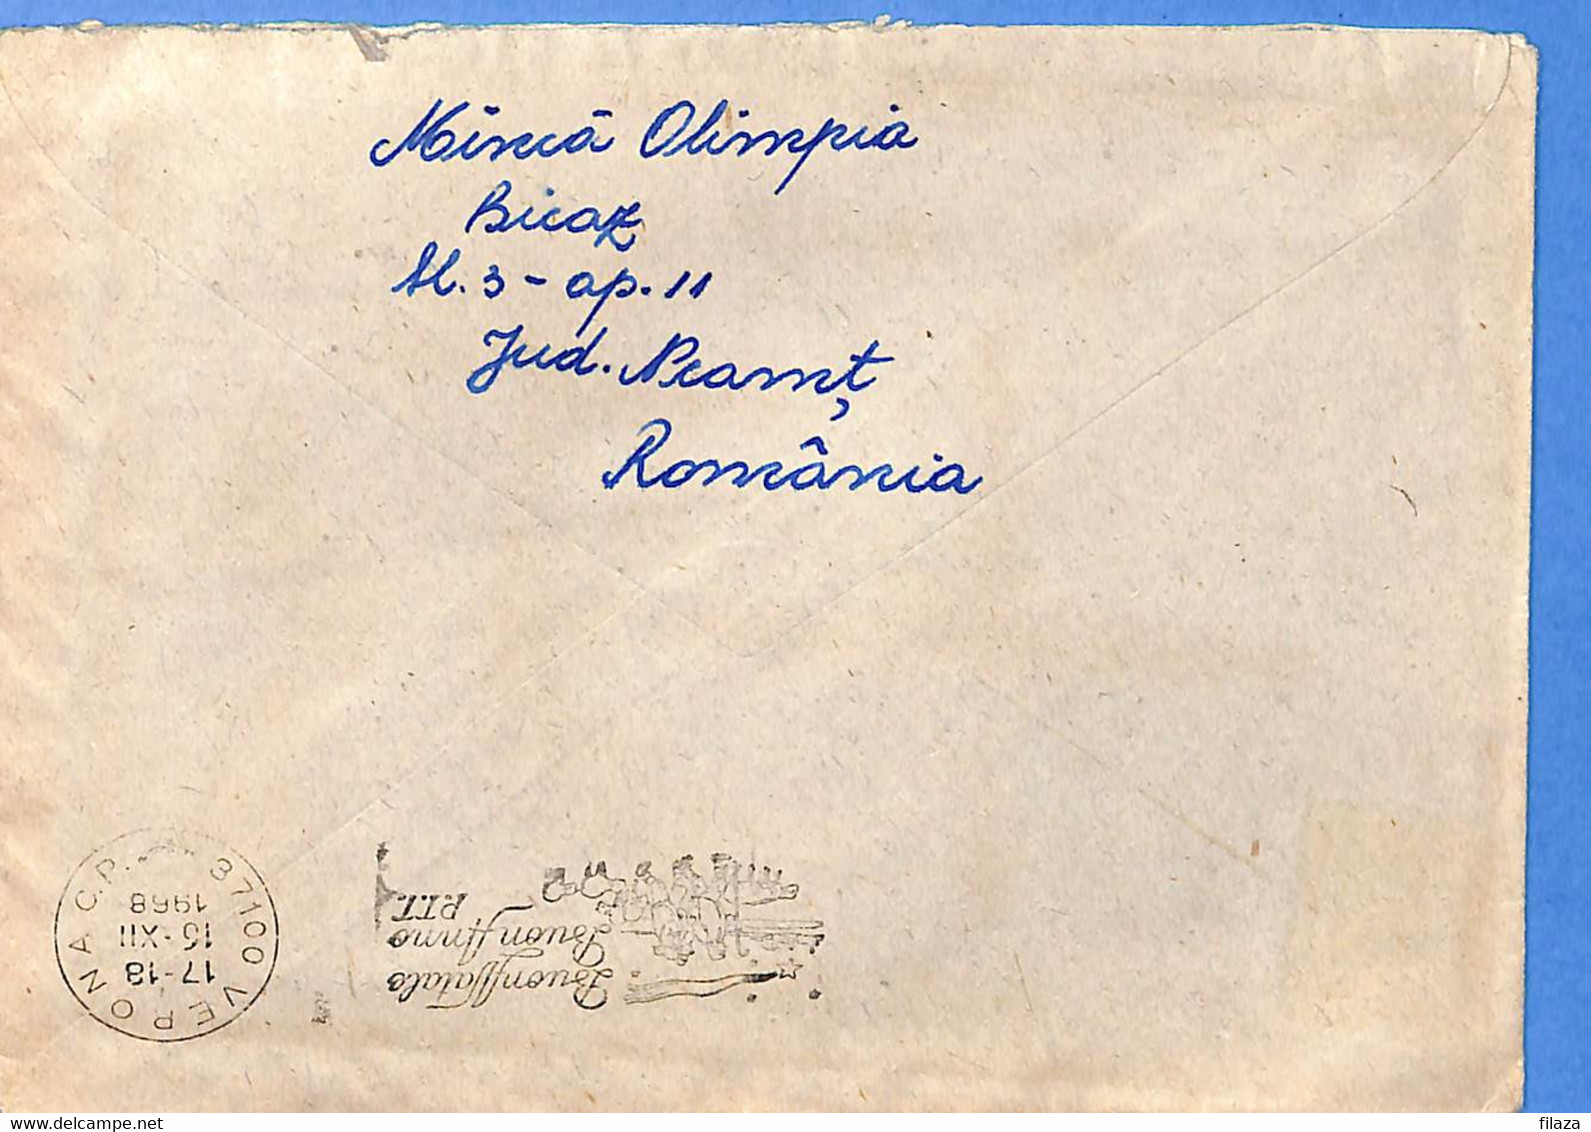 Mîncă Olimpia
Bicaz
bl. 3 - ap. 11
Jud. Neamț
România
37100 VERONA C.P.
17-18
16-XII
1968
Buon Natale
Buon Anno
P.T.T.
www.delcampe.net
filaza